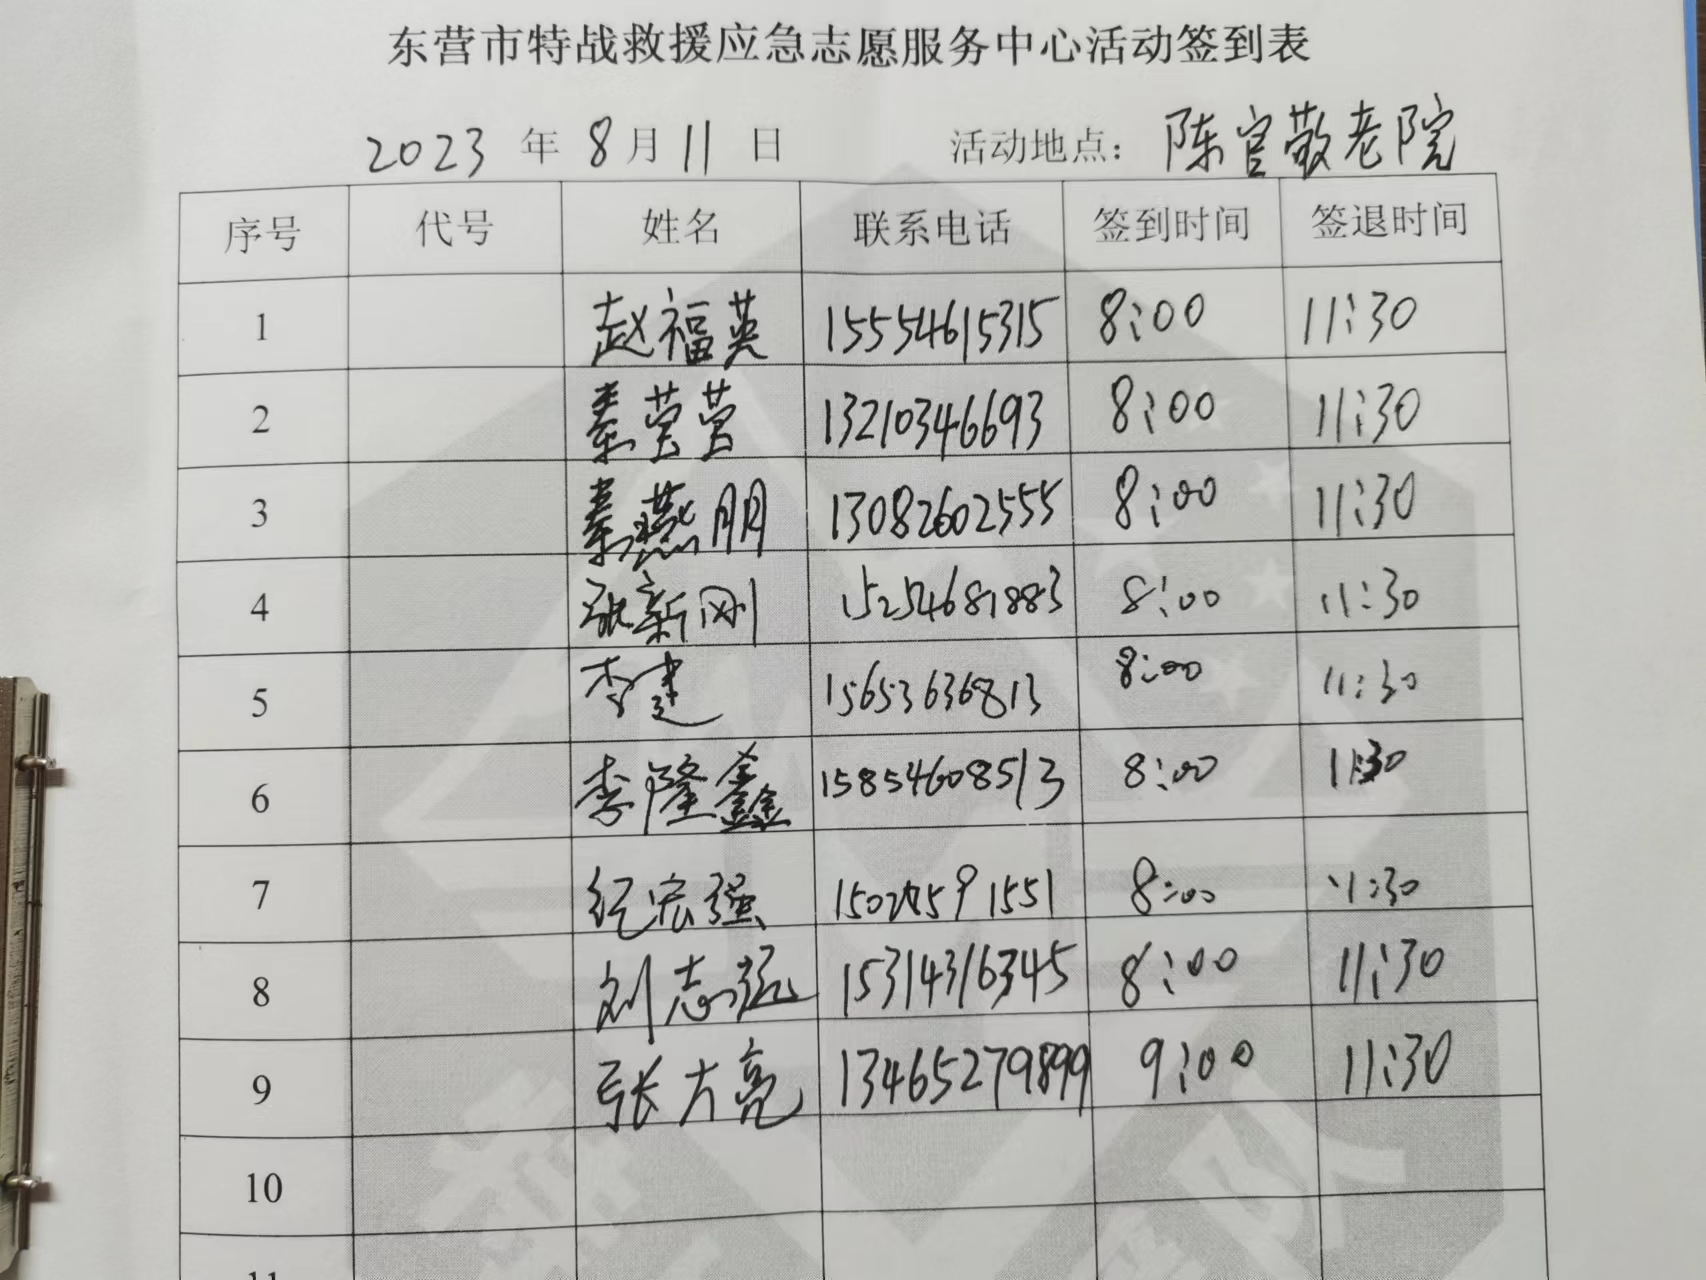 东营市特战救援应急志愿服务中心活动签到表
2023 年 8 月 11 日 活动地点: 陈官敬老院
序号 代号 姓名 联系电话 签到时间 签退时间
1 赵福英 15554615315 8:00 11:30
2 秦莹莹 13210346693 8:00 11:30
3 秦燕朋 13082602555 8:00 11:30
4 张新刚 15254681883 8:00 11:30
5 李建 15653636813 8:00 11:30
6 李隆鑫 15854608513 8:00 11:30
7 纪宏强 8:00 11:30
8 刘志远 15314316345 8:00 11:30
9 张方亮 13465279899 9:00 11:30
10
11